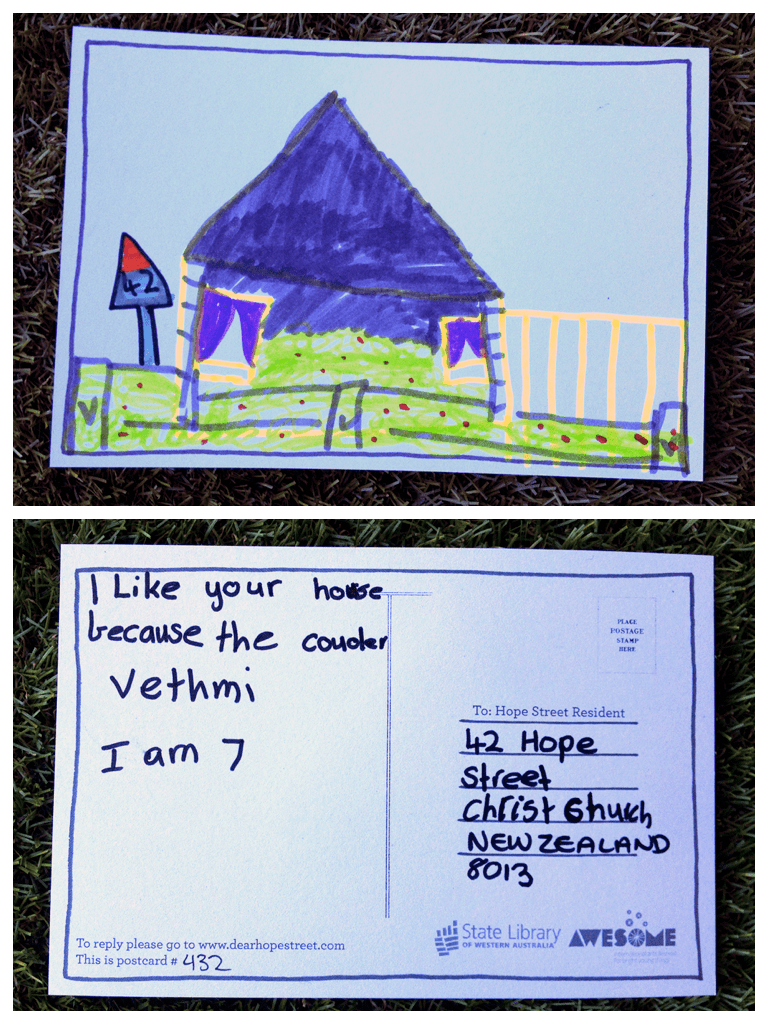 42
I Like your house
because the couoler
Vethmi
I am 7
PLACE
POSTAGE
STAMP
HERE
To: Hope Street Resident
42 Hope
street
Christ Ghurch
NEW ZEALAND
8013
To reply please go to www.dearhopestreet.com
This is postcard # 432
State Library
OF WESTERN AUSTRALIA
AWESOME